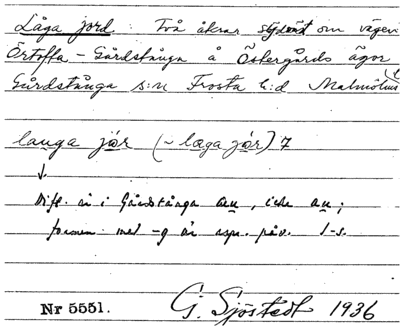 Låga jord : Två åkrar sydväst om vägen
Örtofta - Gårdstånga å Östergårds ägor
Gårdstånga s:n Frosta h:d Malmöhus
lauga jór (~ læga jór) 7
Dift. är i Gårdstånga au, icke au;
formen med -g är
Nr 5551. G. Sjöstedt 1936